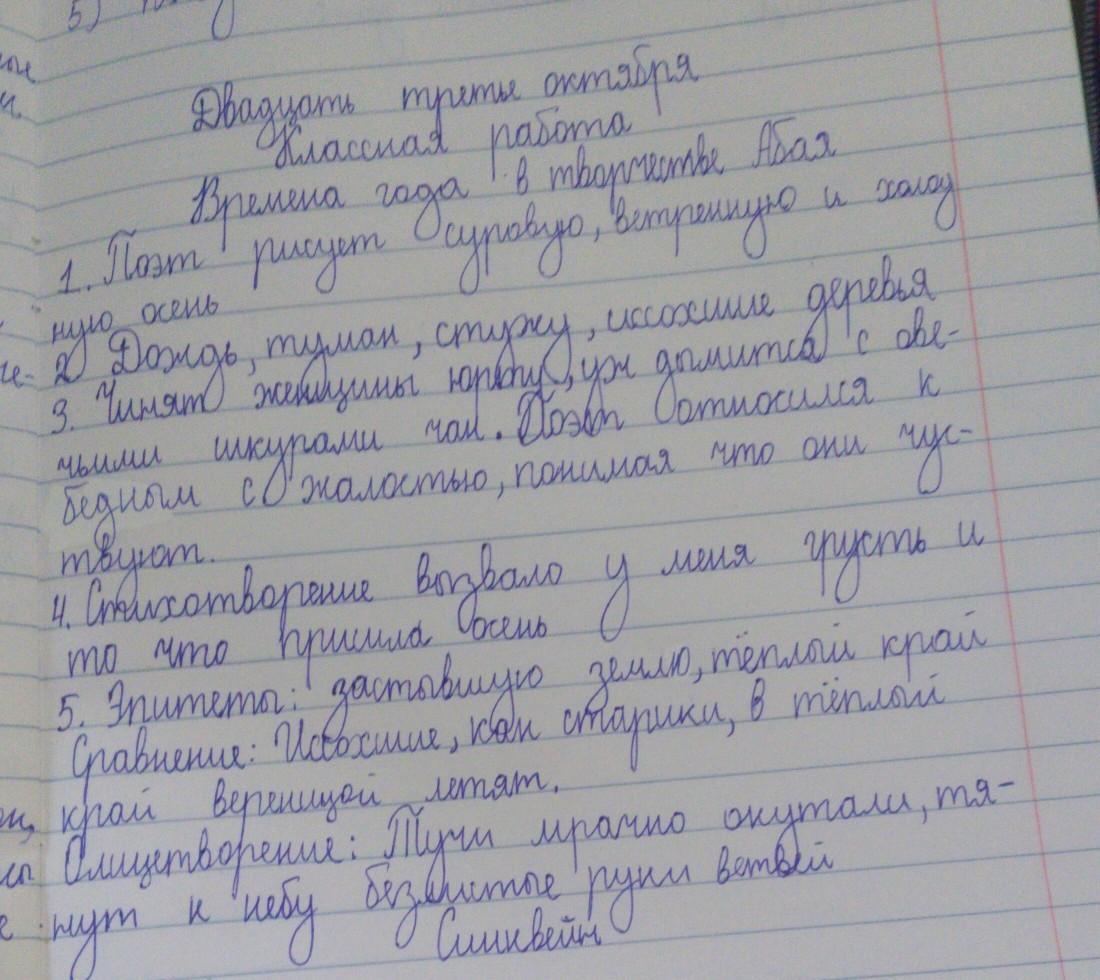 5)
Двадцать третье октября
Классная работа
Времена года в творчестве Абая
1. Поэт рисует суровую, ветренную и холод
ную осень
2 Дождь, туман, стужу, иссохшие деревья
3. Чинят женщины юрту, уж дымится с ове-
чьими шкурами чан. Поэт относился к
бедным с жалостью, понимая что они чус-
твуют.
4. Стихотворение вызвало у меня грусть и
то что пришла осень
5. Эпитеты: застывшую землю, тёплый край
Сравнение: Иссохшие, как старики, в тёплый
край вереницой летят.
Олицетворение: Тучи мрачно окутали, тя-
нут к небу безлистые руки ветвей
Синквейн